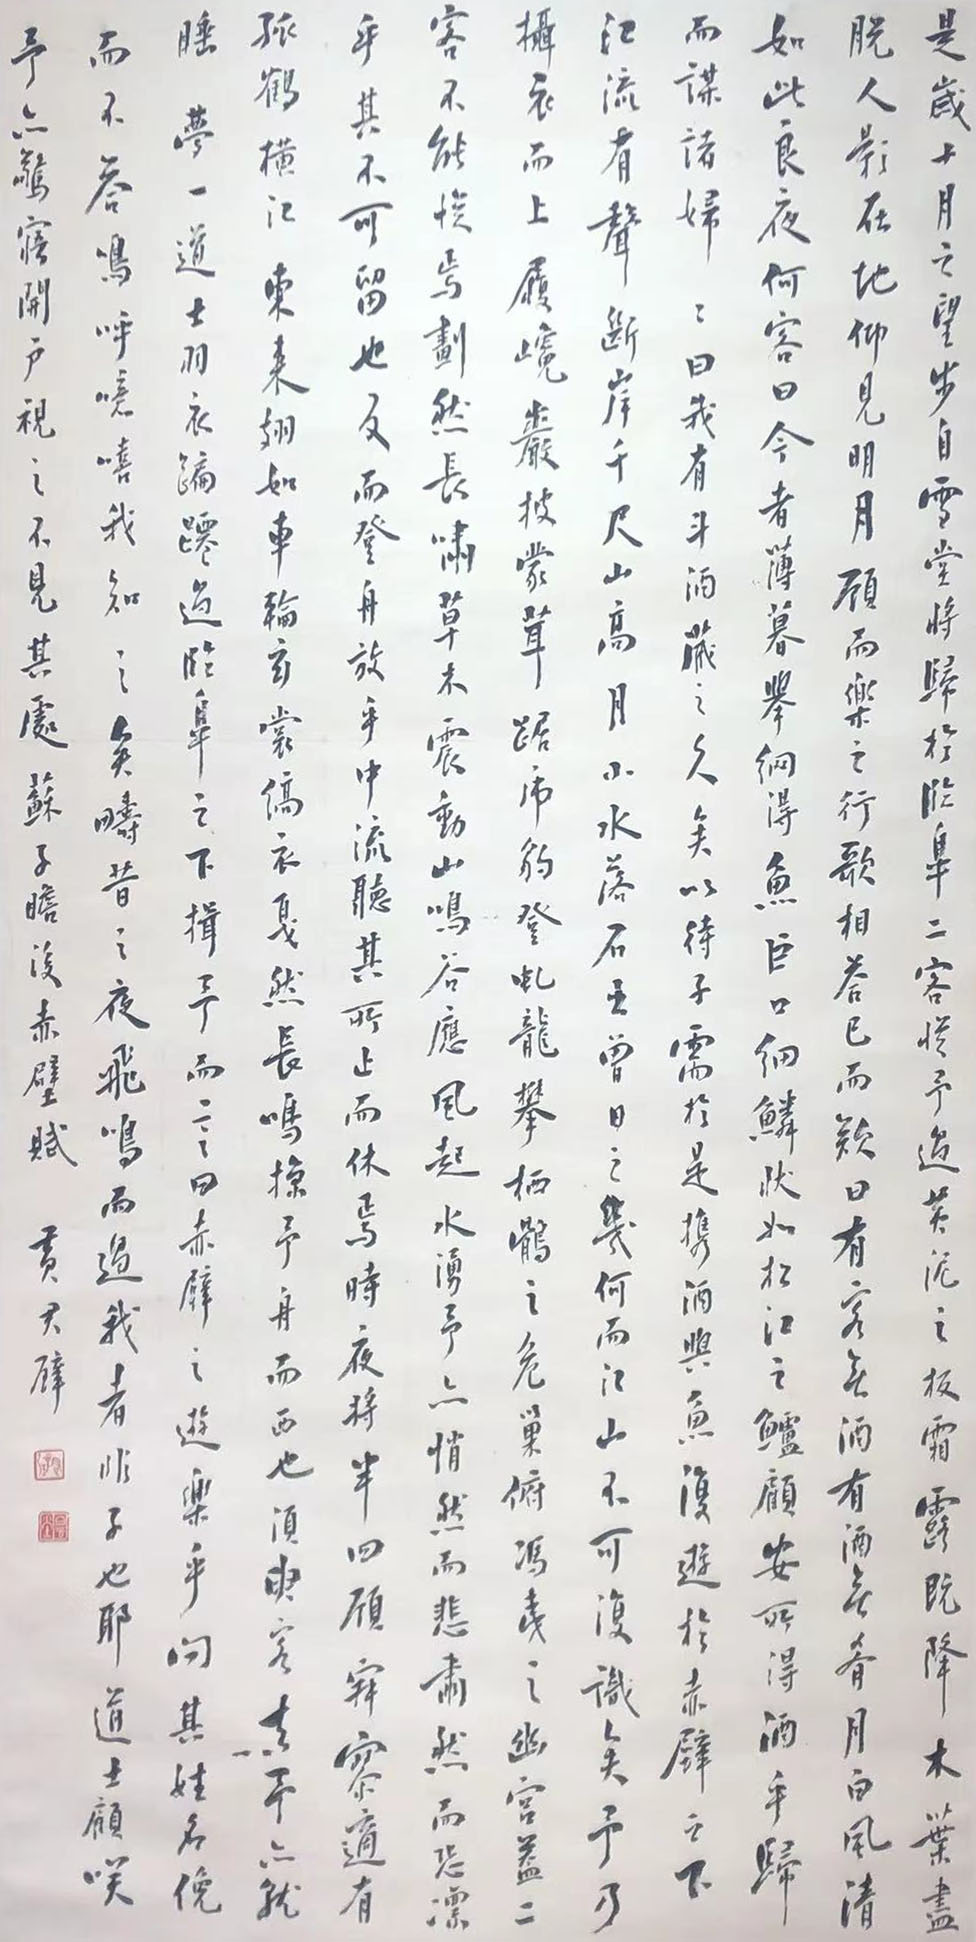 是歲十月之望步自雪堂將歸於臨皋二客從予過黃泥之坂霜露既降木葉盡
脫人影在地仰見明月顧而樂之行歌相荅已而歎曰有客無酒有酒無肴月白風清
如此良夜何客曰今者薄暮舉網得魚巨口細鱗狀如松江之鱸顧安所得酒乎歸
而謀諸婦〻曰我有斗酒藏之久矣以待子需於是攜酒與魚復遊於赤壁之下
江流有聲斷岸千尺山高月小水落石出曾日之幾何而江山不可復識矣予乃
攝衣而上履巉巖披蒙茸踞虎豹登虬龍攀栖鶻之危巢俯馮夷之幽宮蓋二
客不能從焉劃然長嘯草木震動山鳴谷應風起水湧予亦悄然而悲肅然而恐凜
乎其不可留也反而登舟放乎中流聽其所止而休焉時夜將半四顧寂寥適有
孤鶴橫江東來翅如車輪玄裳縞衣戛然長鳴掠予舟而西也須臾客去予亦就
睡夢一道士羽衣蹁躚過臨皋之下揖予而言曰赤壁之遊樂乎問其姓名俛
而不荅嗚呼噫嘻我知之矣疇昔之夜飛鳴而過我者非子也耶道士顧笑
予亦驚寤開戶視之不見其處蘇子瞻後赤壁賦 黃君璧